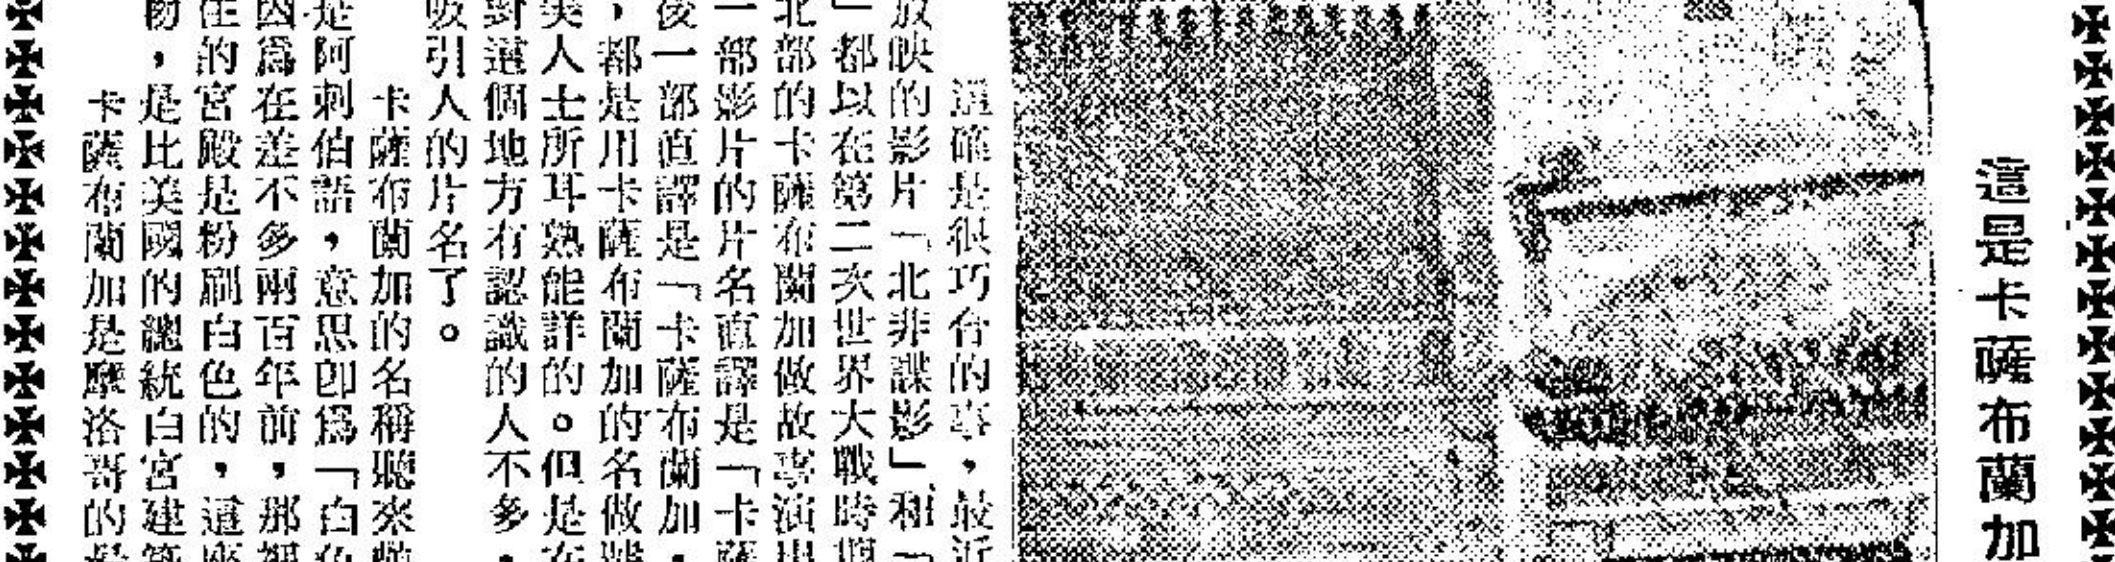 這是卡薩布蘭加
這確是很巧合的事,最近
放映的影片「北非諜影」和「
」都以在第二次世界大戰時
北部的卡薩布蘭加做故事演出
一部影片的片名直譯是「卡薩
後一部直譯是「卡薩布蘭加,
,都是用卡薩布蘭加的名做
美人士所耳熟能詳的。但是在
對這個地方有認識的人不多,
吸引人的片名了。
卡薩布蘭加的名稱聽來
是阿刺伯語,意思卽爲「白色
因爲在差不多兩百年前,那裡
住的宮殿是粉刷白色的,這座
物,是比美國的總統白宮建築
卡薩布蘭加是摩洛哥的